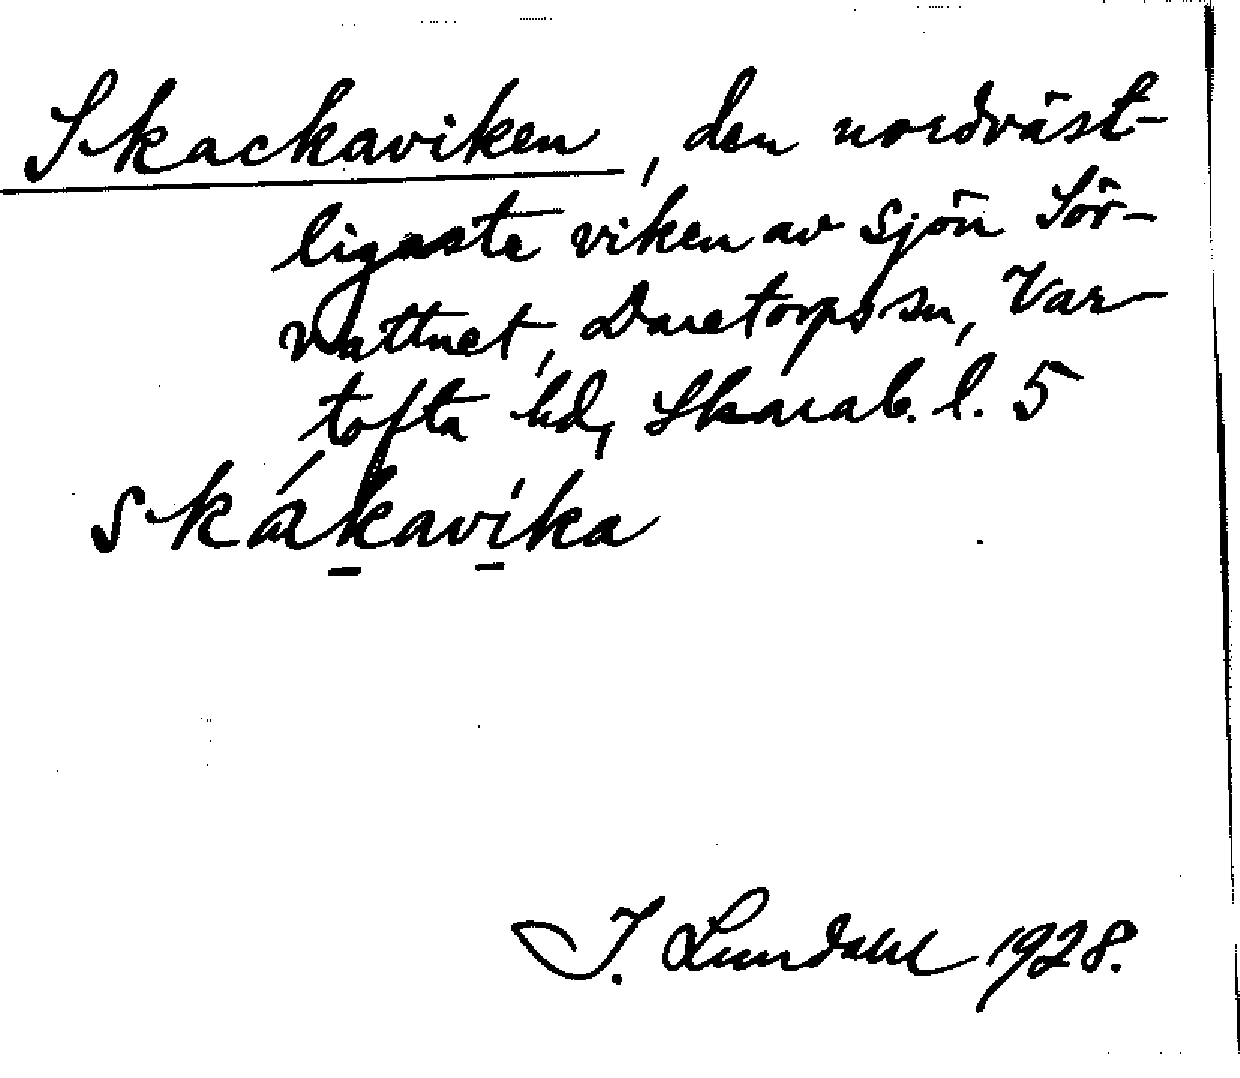 Skackaviken, den nordväst-
ligaste viken av sjön Sör-
vattnet, Daretorps sn, Var-
tofta hd, Skarab. l. 5
skák̲aví̲ka
I. Lundahl 1928.